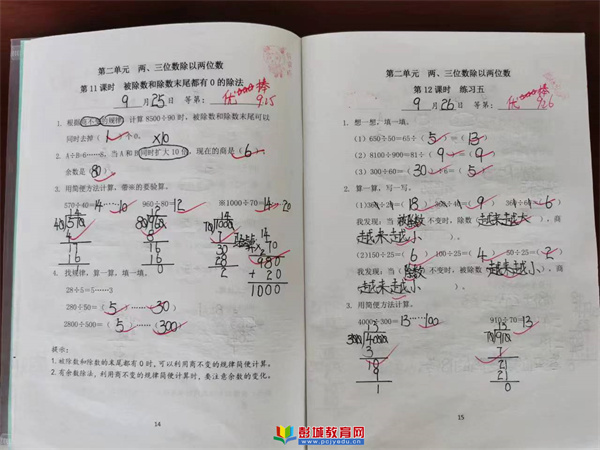 第二单元 两、三位数除以两位数
第11课时 被除数和除数末尾都有0的除法
9月25日 等第:优 棒 9.25
1. 根据商不变的规律,计算8500÷90时,被除数和除数末尾可以
同时去掉( 1 )个0。
×10
2. A÷B=6……8,当A和B同时扩大10倍,现在的商是( 6 ),
余数是( 80 )
3. 用简便方法计算。带※的要验算。
570÷40=14……10 960÷80=12 ※1000÷70=14……20
4. 找规律,算一算,填一填。
28÷5=5……3
280÷50=( 5 )……( 30 )
2800÷500=( 5 )……( 300 )
980
+ 20
1000
提示:
1. 被除数和除数的末尾都有0时,可以利用商不变的规律简便计算。
2. 有余数除法,利用商不变的规律简便计算时,要注意余数的变化。
14
第二单元 两、三位数除以两位数
第12课时 练习五
9月26日 等第:优 棒 9.26
1. 想一想,填一填。
(1)650÷50=65÷( 5 )=( 13 )
(2)8100÷900=81÷( 9 )=( 9 )
(3)300÷60=( 30 )÷6=( 5 )
2. 算一算,写一写。
我发现:当(被除数)不变时,除数(越来越大),商
(越来越小)。
(2)150÷25=( 6 ) 100÷25=( 4 ) 50÷25=( 2 )
我发现:当(除数)不变时,被除数(越来越小),商
(越来越小)。
3. 用简便方法计算。
4000÷300=13……100 910÷70=13
15
彭城教育网
www.pcjyedu.cn